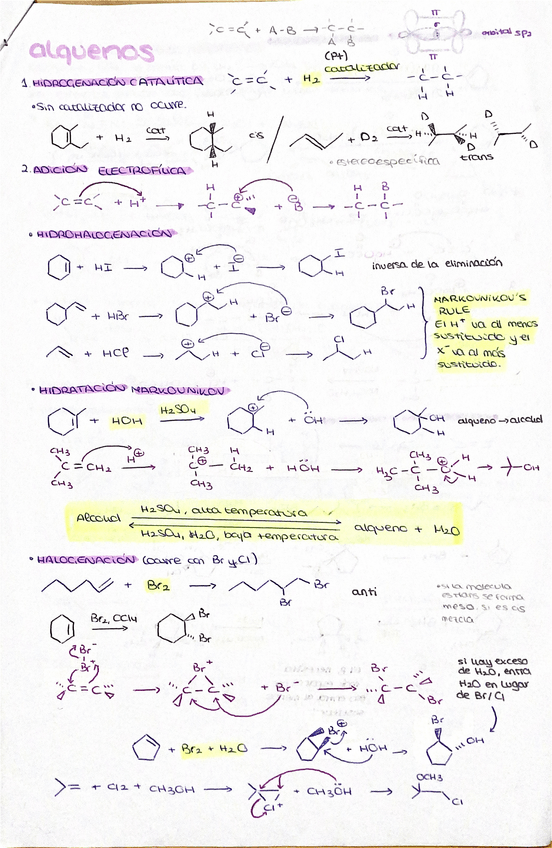 C=C + A-B → -C-C-
A B
π
σ
π
orbital sp2
alquenos
(Pt)
1. HIDROGENACIÓN CATALÍTICA C=C + H2 catalizador → -C-C-
H H
• Sin catalizador no ocurre.
+ H2 cat → H H cis / + D2 cat → D H D H D D
• estereoespecífica trans
2. ADICIÓN ELECTROFÍLICA
C=C + H+ → H -C-C ⊕ + B ⊖ → H B -C-C-
• HIDROHALOGENACIÓN
+ HI → ⊕ H + I ⊖ → I H inversa de la eliminación
+ HBr → ⊕ H + Br ⊖ → Br H
+ HCl → ⊕ H + Cl ⊖ → Cl H
MARKOUNIKOU'S
RULE
El H+ va al menos
sustituido y el
X- va al más
sustituido.
• HIDRATACIÓN MARKOUNIKOU
+ HOH H2SO4 → ⊕ H + ÖH → OH H alqueno → alcohol
CH3 C=CH2 CH3 H ⊕ → CH3 C⊕ - CH2 H CH3 + HÖH → H3C - C - C H H CH3 CH3 ⊕ → OH
Alcohol H2SO4, alta temperatura
H2SO4, H2O, baja temperatura alqueno + H2O
• HALOGENACIÓN (ocurre con Br y Cl)
+ Br2 → Br Br anti
• si la molécula
es trans se forma
meso. si es cis
mezcla
Br2, CCl4 → Br Br
Br-
Br
C=C → Br+ C-C + Br- → Br C-C Br
si hay exceso
de H2O, entra
H2O en lugar
de Br/Cl
+ Br2 + H2O → Br ⊕ + HÖH → Br OH
= + Cl2 + CH3OH → Cl+ + CH3ÖH → OCH3 Cl